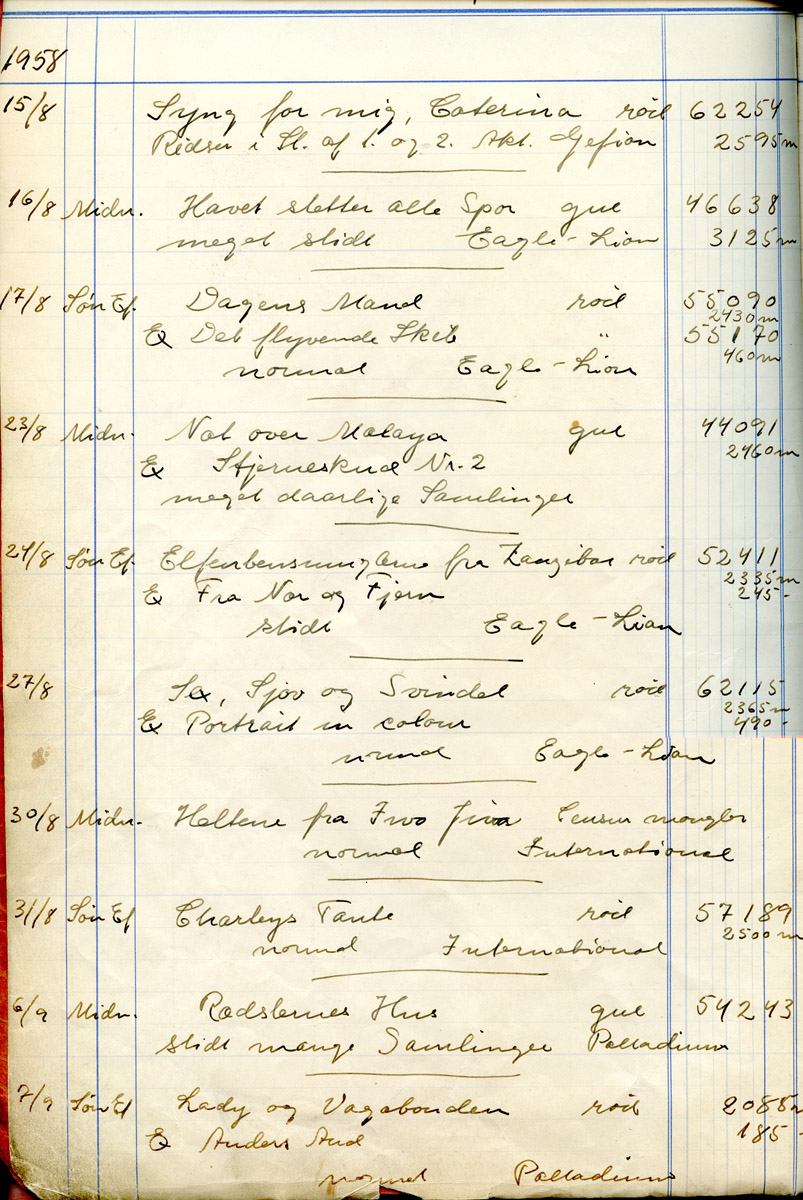 1958
15/8 Syng for mig, Caterina rød 62254
Ridser i Sl. af 1. og 2. Akt. Gefion 2595 m
16/8 Midn. Havet sletter alle Spor gul 46638
meget slidt Eagle-Lion 3125 m
17/8 Søn Ef. Dagens Mand rød 55090
2430 m
Ex Det flyvende Skib " 55170
460 m
normal Eagle-Lion
23/8 Midn. Nat over Malaya gul 44091
2460 m
Ex Stjerneskud Nr. 2
meget daarlige Samlinger
24/8 Søn Ef. Elfenbensungerne fra Zanzibar rød 52411
2335 m
Ex Fra Nær og Fjern 245 -
slidt Eagle-Lion
27/8 Sex, Sjov og Svindel rød 62115
2365 m
Ex Portrait in colour 490 -
normal Eagle-Lion
30/8 Midn. Heltene fra Iwo Jima Censur mangler
normal International
31/8 Søn Ef Charleys Tante rød 57189
2500 m
normal International
6/9 Midn. Rædslernes Hus gul 54243
slidt mange Samlinger Palladium
7/9 Søn Ef Lady og Vagabonden rød 2085 m
Ex Anders And 185 -
normal Palladium